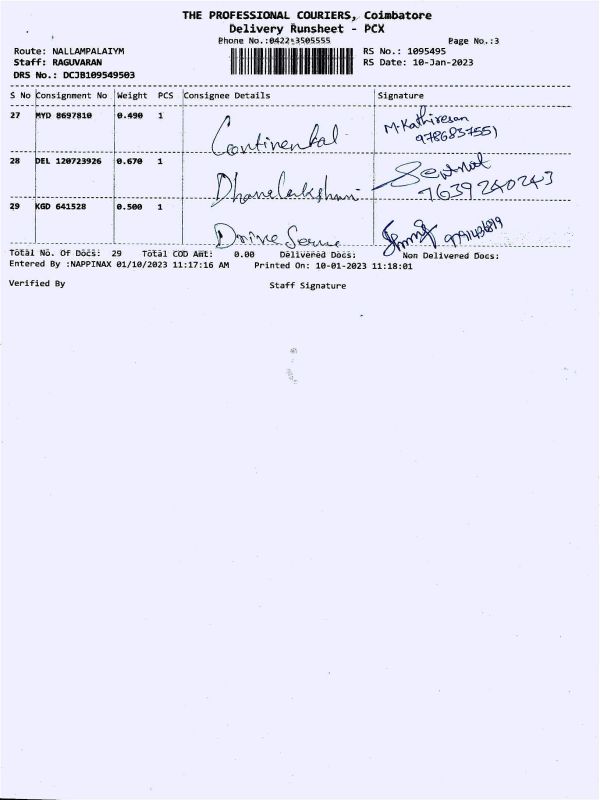 THE PROFESSIONAL COURIERS, Coimbatore
Delivery Runsheet - PCX
Phone No.:0422-3505555 Page No.:3
Route: NALLAMPALAIYM RS No.: 1095495
Staff: RAGUVARAN RS Date: 10-Jan-2023
DRS No.: DCJB109549503
S No Consignment No Weight PCS Consignee Details Signature
27 MYD 8697810 0.490 1 Continental M.Kathiresan
9786837551
28 DEL 120723926 0.670 1 Dhanelakshmi
7639240243
29 KGD 641528 0.500 1 Drive
Total No. Of Docs: 29 Total COD Amt: 0.00 Delivered Docs: Non Delivered Docs:
Entered By :NAPPINAX 01/10/2023 11:17:16 AM Printed On: 10-01-2023 11:18:01
Verified By Staff Signature